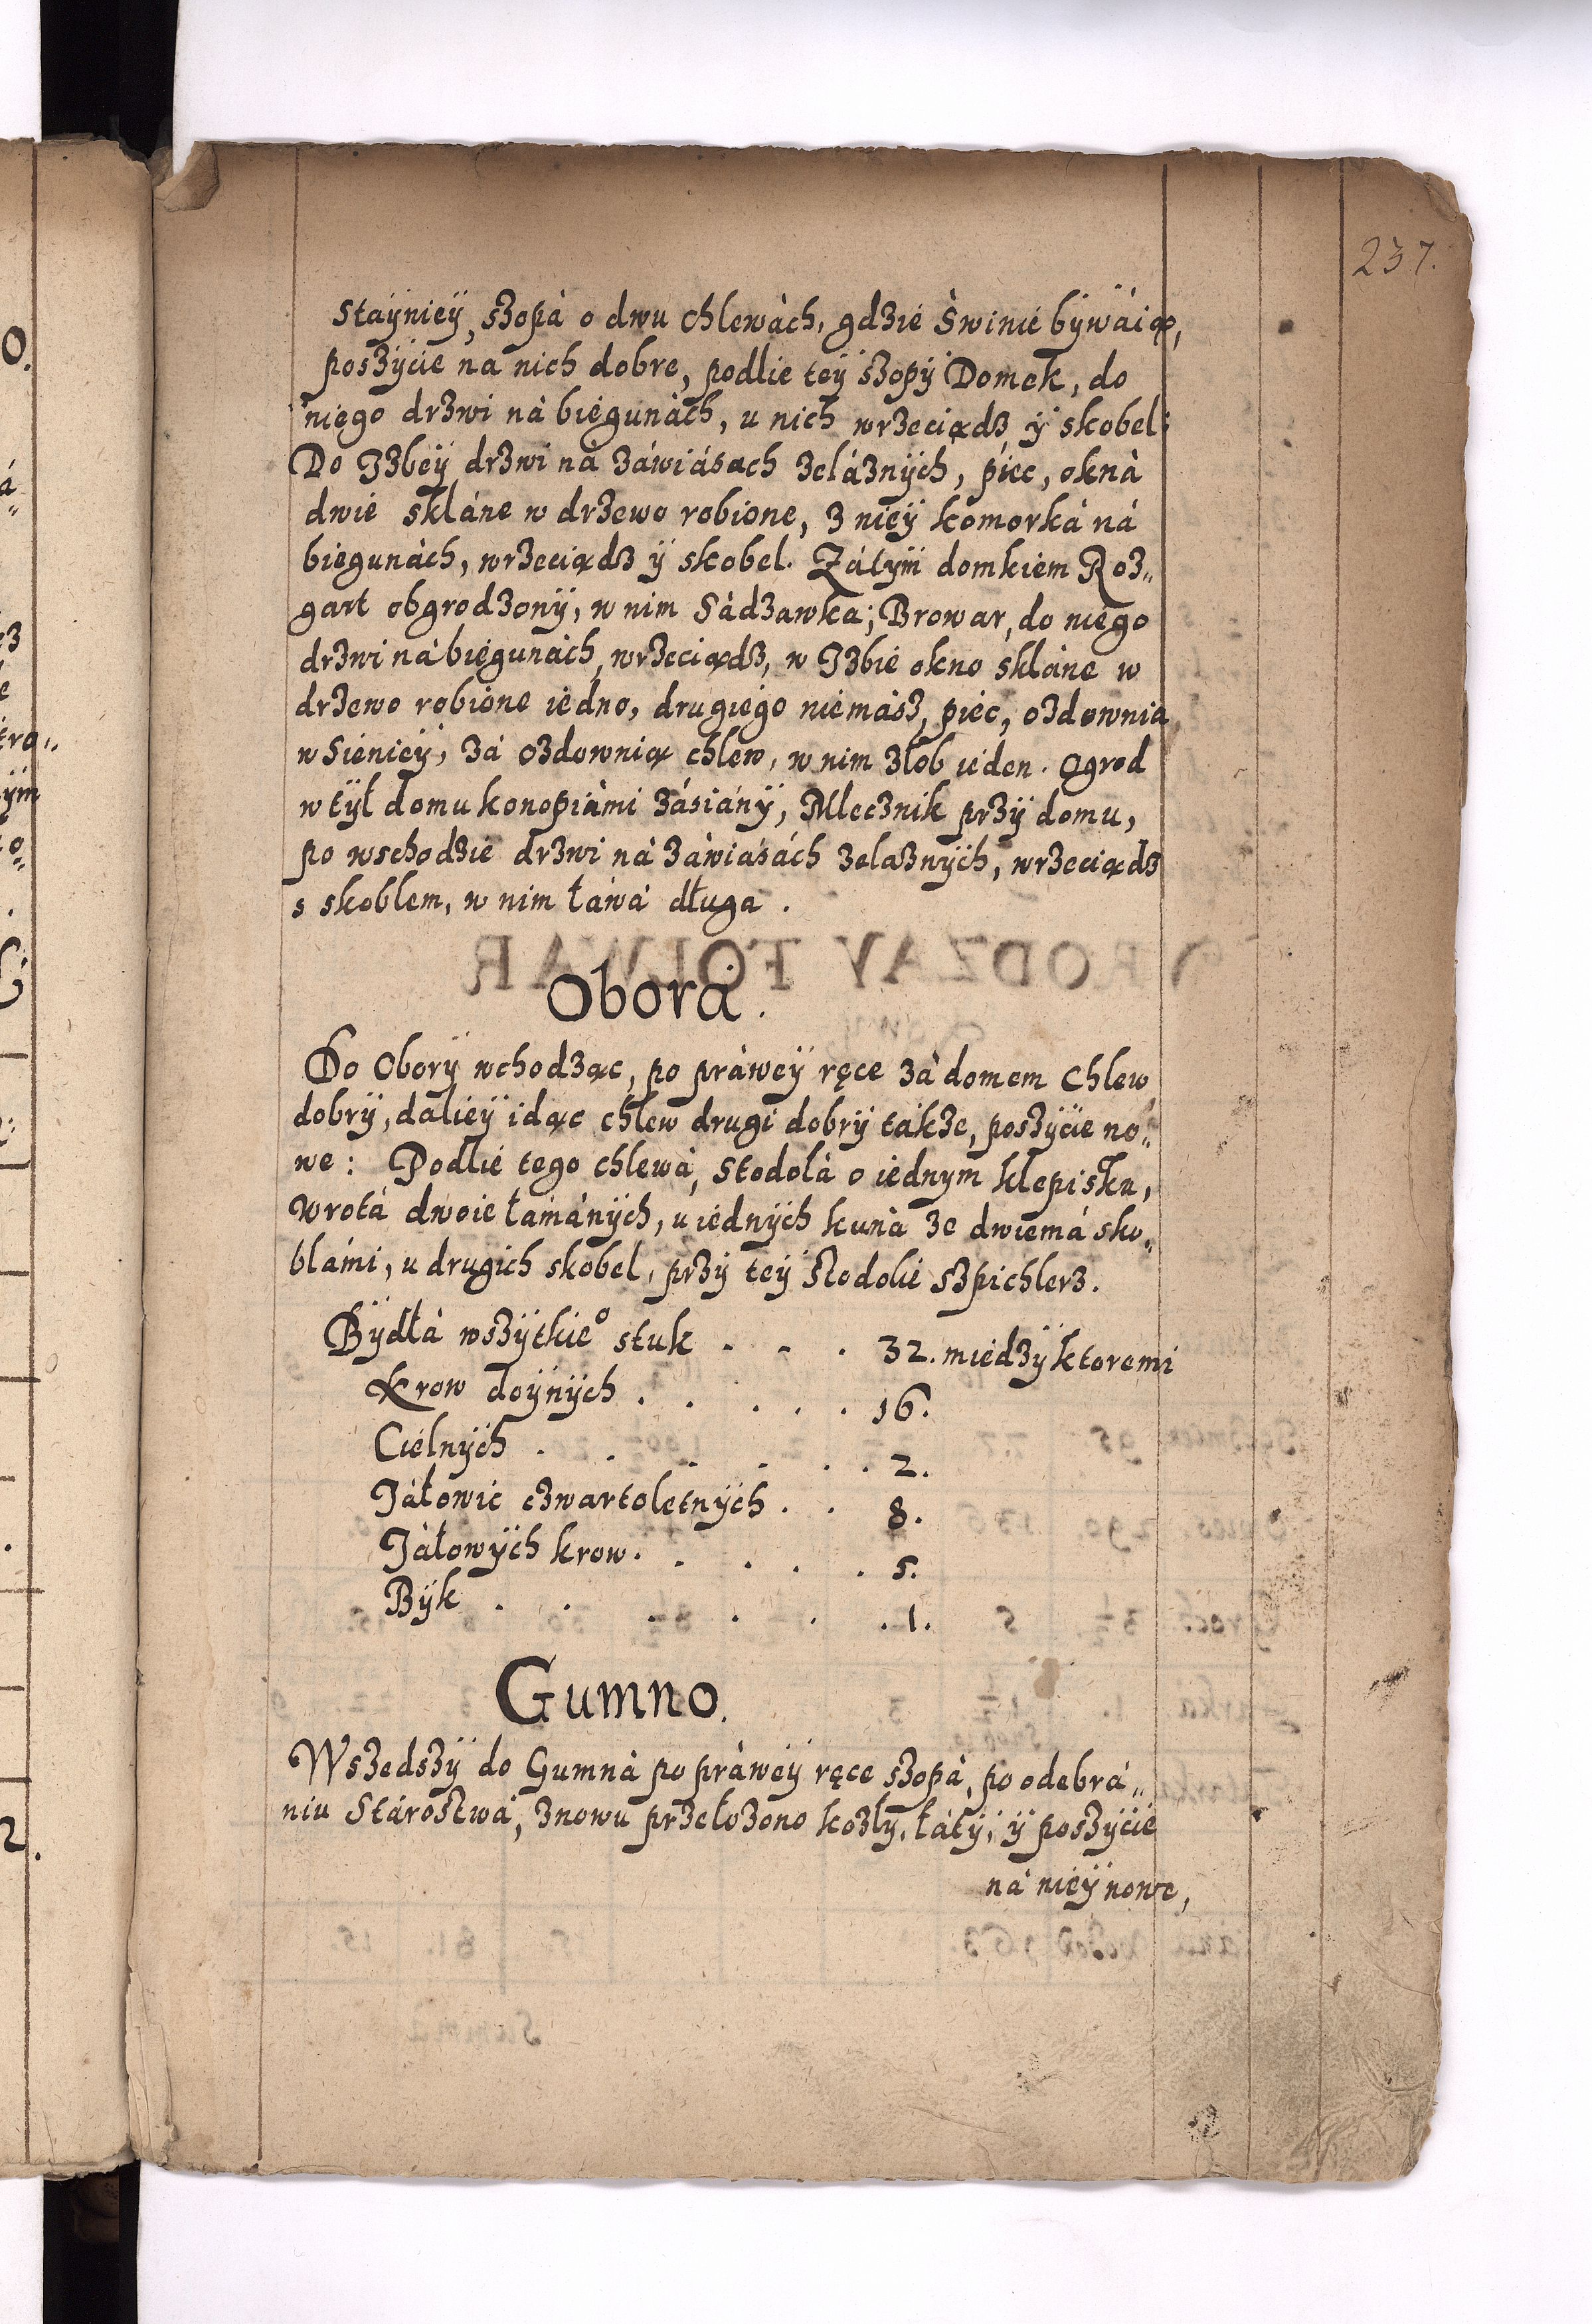 237.
Stayniey, szopà o dwu chlewàch, gdzié Swinié bywáią,
poszycie na nich dobre, podlie tey szopy Domek, do
niego drzwi nà biegunàch, u nich wrzeciądz y skobel:
Do Izbey drzwi nà záwiásach zeláznych, piec, oknà
dwie skláne w drzewo robione, z niey komorkà nà
biegunàch, wrzeciądz y skobel. Zátym domkiem Roz„
gart obgrodzony, w nim Sàdzawka; Browar, do niego
drzwi nà biegunàch, wrzeciądz, w Izbie okno skláne w
drzewo robione iedno, drugiego niemász, piec, ozdownia
w Sieniey, zá ozdownią chlew, w nim złob ieden. Ogrod
w tył domu konopiàmi zásiány, Mlecznik przy domu,
po wschodzie drzwi nà zàwiásách zelaznych, wrzeciądz
s skoblem, w nim łáwá długa.
Oborà.
Do Obory wchodząc, po pràwey ręce zà domem Chlew
dobry, daliey idąc chlew drugi dobry tákze, poszycie no„
we: Podlie tego chlewà, Stodołà o iednym klepisku,
Wrotá dwoie łámánych, u iednych kunà ze dwiemá sko„
blámi, u drugich skobel, przy tey stodolie szpichlerz.
Bydłà wszytkie° stuk . . . 32. między ktoremi
Krow doynych . . . . . 16.
Cielnych . . . . . . 2.
Jáłowic czwartoletnych . . 8.
Jáłowych krow . . . . . 5.
Byk . . . . . . 1.
Gumno.
Wszedszy do Gumnà po pràwey ręce szopà, po odebrá„
niu Stárostwá, znowu przełozono kozły, łáty, y poszycie
nà niey nowe,